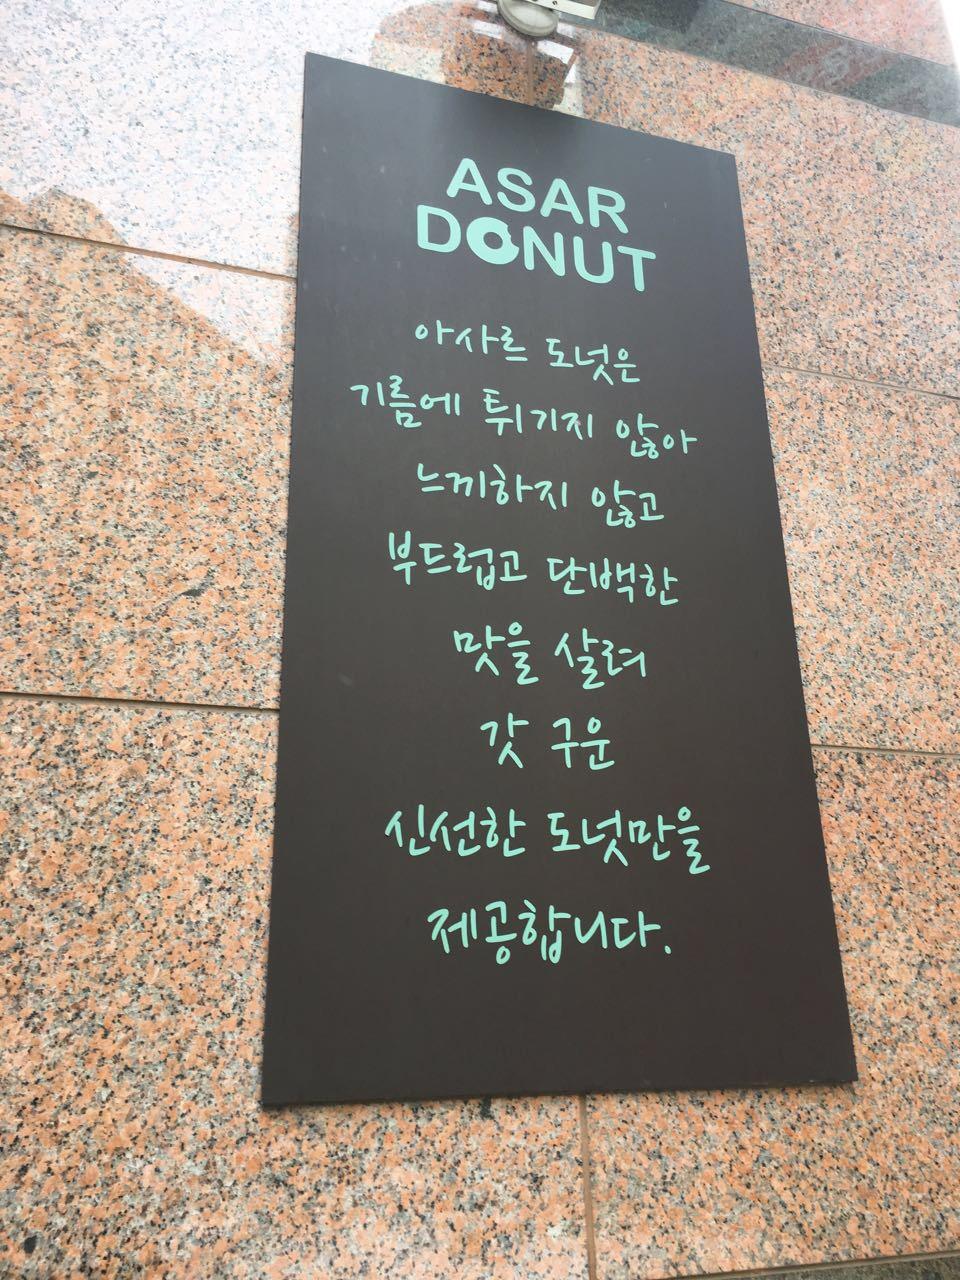 ASAR
DONUT
아사르 도넛은
기름에 튀기지 않아
느끼하지 않고
부드럽고 단백한
맛을 살려
갓 구운
신선한 도넛만을
제공합니다.